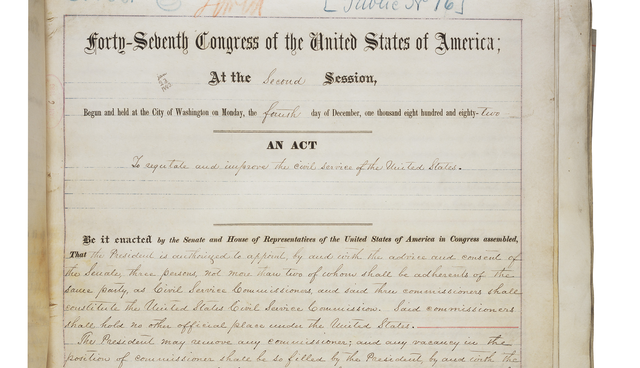 [Public No 16]
Forty-Seventh Congress of the United States of America;
At the Second Session,
Begun and held at the City of Washington on Monday, the fourth day of December, one thousand eight hundred and eighty-two
AN ACT
To regulate and improve the civil service of the United States.
Be it enacted by the Senate and House of Representatives of the United States of America in Congress assembled,
That the President is authorized to appoint, by and with the advice and consent of
the Senate, three persons, not more than two of whom shall be adherents of the
same party, as Civil Service Commissioners, and said three commissioners shall
constitute the United States Civil Service Commission. Said commissioners
shall hold no other official place under the United States.
The President may remove any commissioner; and any vacancy in the
position of commissioner shall be so filled by the President, by and with the